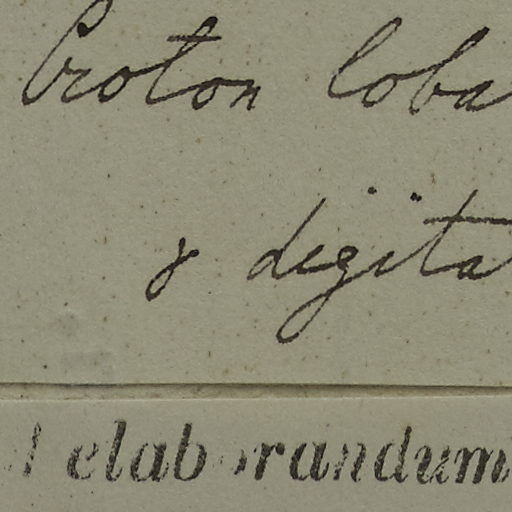 Croton loba
γ digita
d elaborandum